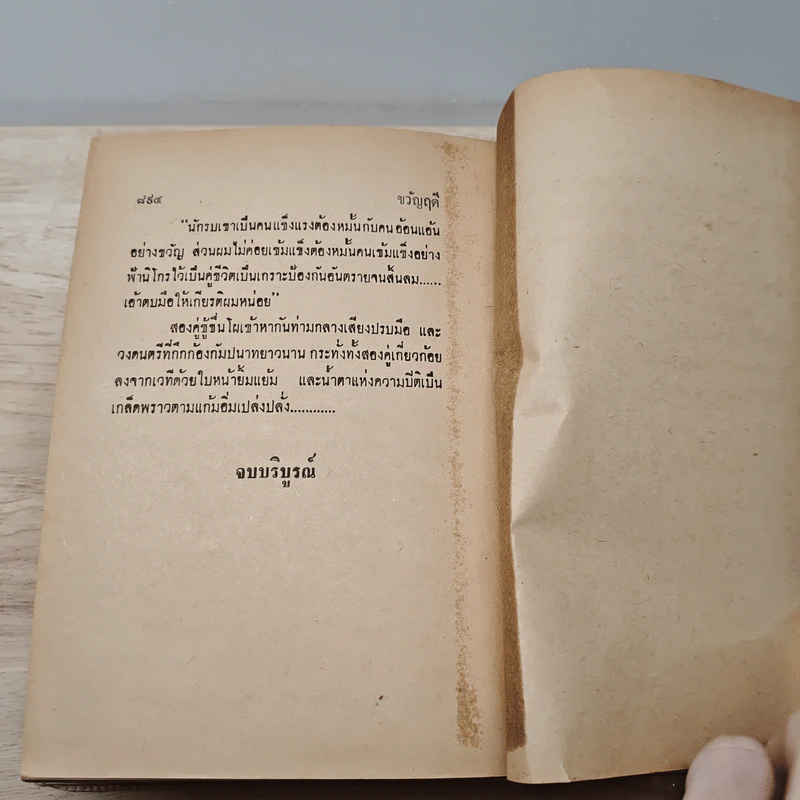 ๘๙๔ ขวัญฤดี
"นักรบเขาเป็นคนแข็งแรงต้องหมั้นกับคนอ้อนแอ้น
อย่างขวัญ ส่วนผมไม่ค่อยเข้มแข็งต้องหมั้นคนเข้มแข็งอย่าง
ฟ้านิโกรไว้เป็นคู่ชีวิตเป็นเกราะป้องกันอันตรายจนสิ้นลม......
เอ้าตบมือให้เกียรติผมหน่อย"
สองคู่ชู้ชื่นโผเข้าหากันท่ามกลางเสียงปรบมือ และ
วงดนตรีที่กึกก้องกัมปนาทยาวนาน กระทั่งทั้งสองคู่เกี่ยวก้อย
ลงจากเวทีด้วยใบหน้ายิ้มแย้ม และน้ำตาแห่งความปีติเป็น
เกล็ดพราวตามแก้มอิ่มเปล่งปลั่ง............
จบบริบูรณ์